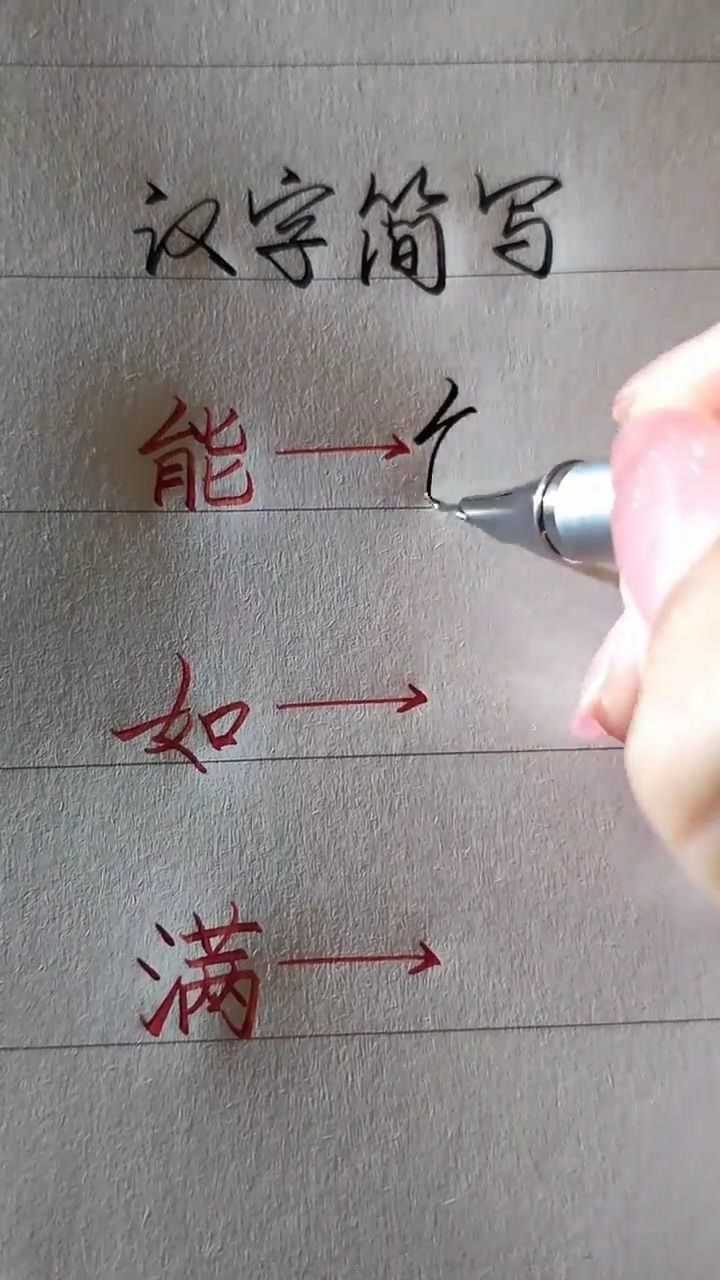 汉字简写
能
如
满